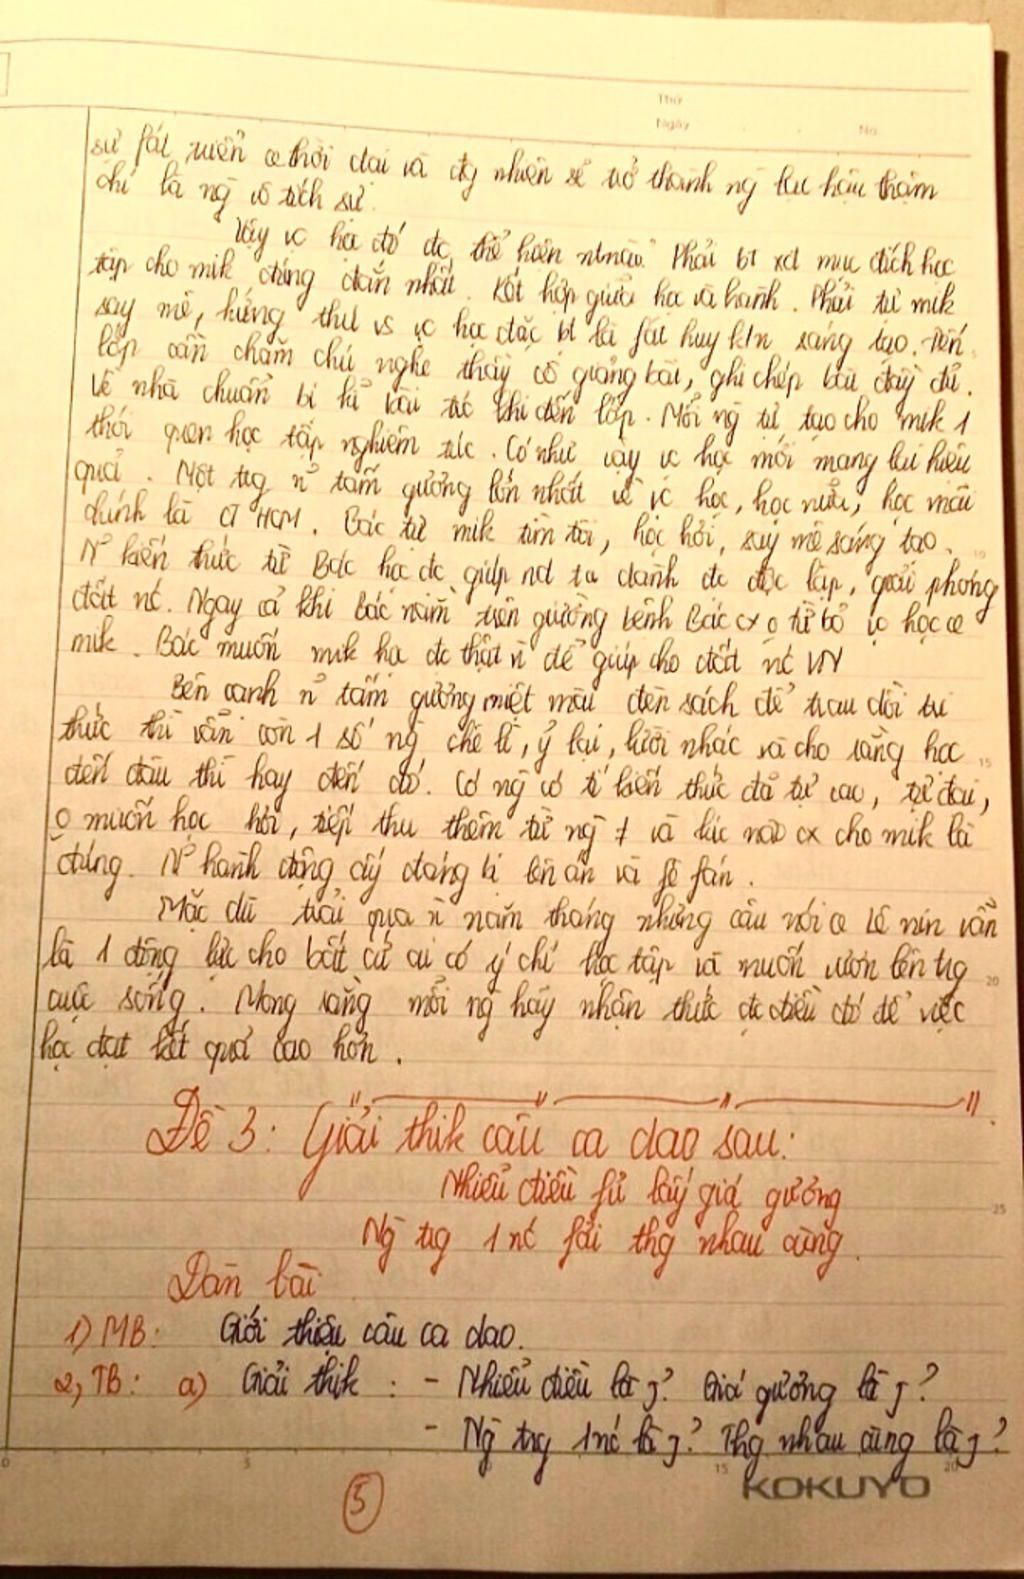 Thứ
Ngày No.
sự fát triển c thời đại và đg nhiên sẽ trở thành ng lạc hậu thậm
chí là ng vô tích sự.
Vậy vc học đó đc thể hiện ntnào? Phải bt xđ mục đích học
tập cho mik đúng đắn nhất. Kết hợp giữa học và hành. Phải tự mik
say mê, hứng thú vs vc học đặc bt là fát huy k/n sáng tạo. Đến
lớp cần chăm chú nghe thầy cô giảng bài, ghi chép bài đầy đủ.
Về nhà chuẩn bị kĩ bài trc khi đến lớp. Mỗi ng tự tạo cho mik 1
thói quen học tập nghiêm túc. Có như vậy vc học mới mang lại hiệu
quả. Một trg n~ tấm gương lớn nhất về vc học, học nữa, học mãi
chính là CT HCM. Bác tự mik tìm tòi, học hỏi, say mê sáng tạo.
N~ kiến thức từ Bác học đc giúp nd ta dành đc độc lập, giải phóng
đất nc. Ngay cả khi Bác nằm trên giường bệnh Bác cx o từ bỏ vc học c
mik. Bác muốn mik học đc thật n` để giúp cho đất nc VN
Bên cạnh n~ tấm gương miệt mài đèn sách để trau dồi tri
thức thì vẫn còn 1 số ng chê lì, ỷ lại, lười nhác và cho rằng học
đến đâu thì hay đến đó. Có ng có tí kiến thức đã tự cao, tự đại,
o muốn học hỏi, tiếp thu thêm từ ng ≠ và lúc nào cx cho mik là
đúng. N~ hành động ấy đáng bị lên án và fê fán.
Mặc dù trải qua n` năm tháng nhưng câu nói c Lê nin vẫn
là 1 động lực cho bất cứ ai có ý chí học tập và muốn vươn lên trg
cuộc sống. Mong rằng mỗi ng hãy nhận thức đc điều đó để việc
học đạt kết quả cao hơn.
Đề 3: Giải thik câu ca dao sau:
Nhiễu điều fủ lấy giá gương
Ng trg 1 nc fải thg nhau cùng.
Dàn bài
1) MB: Giới thiệu câu ca dao.
2, TB: a) Giải thik: - Nhiễu điều là j? Giá gương là j?
- Ng trg 1 nc là j? Thg nhau cùng là j?
0 5 15 20
KOKUYO
5